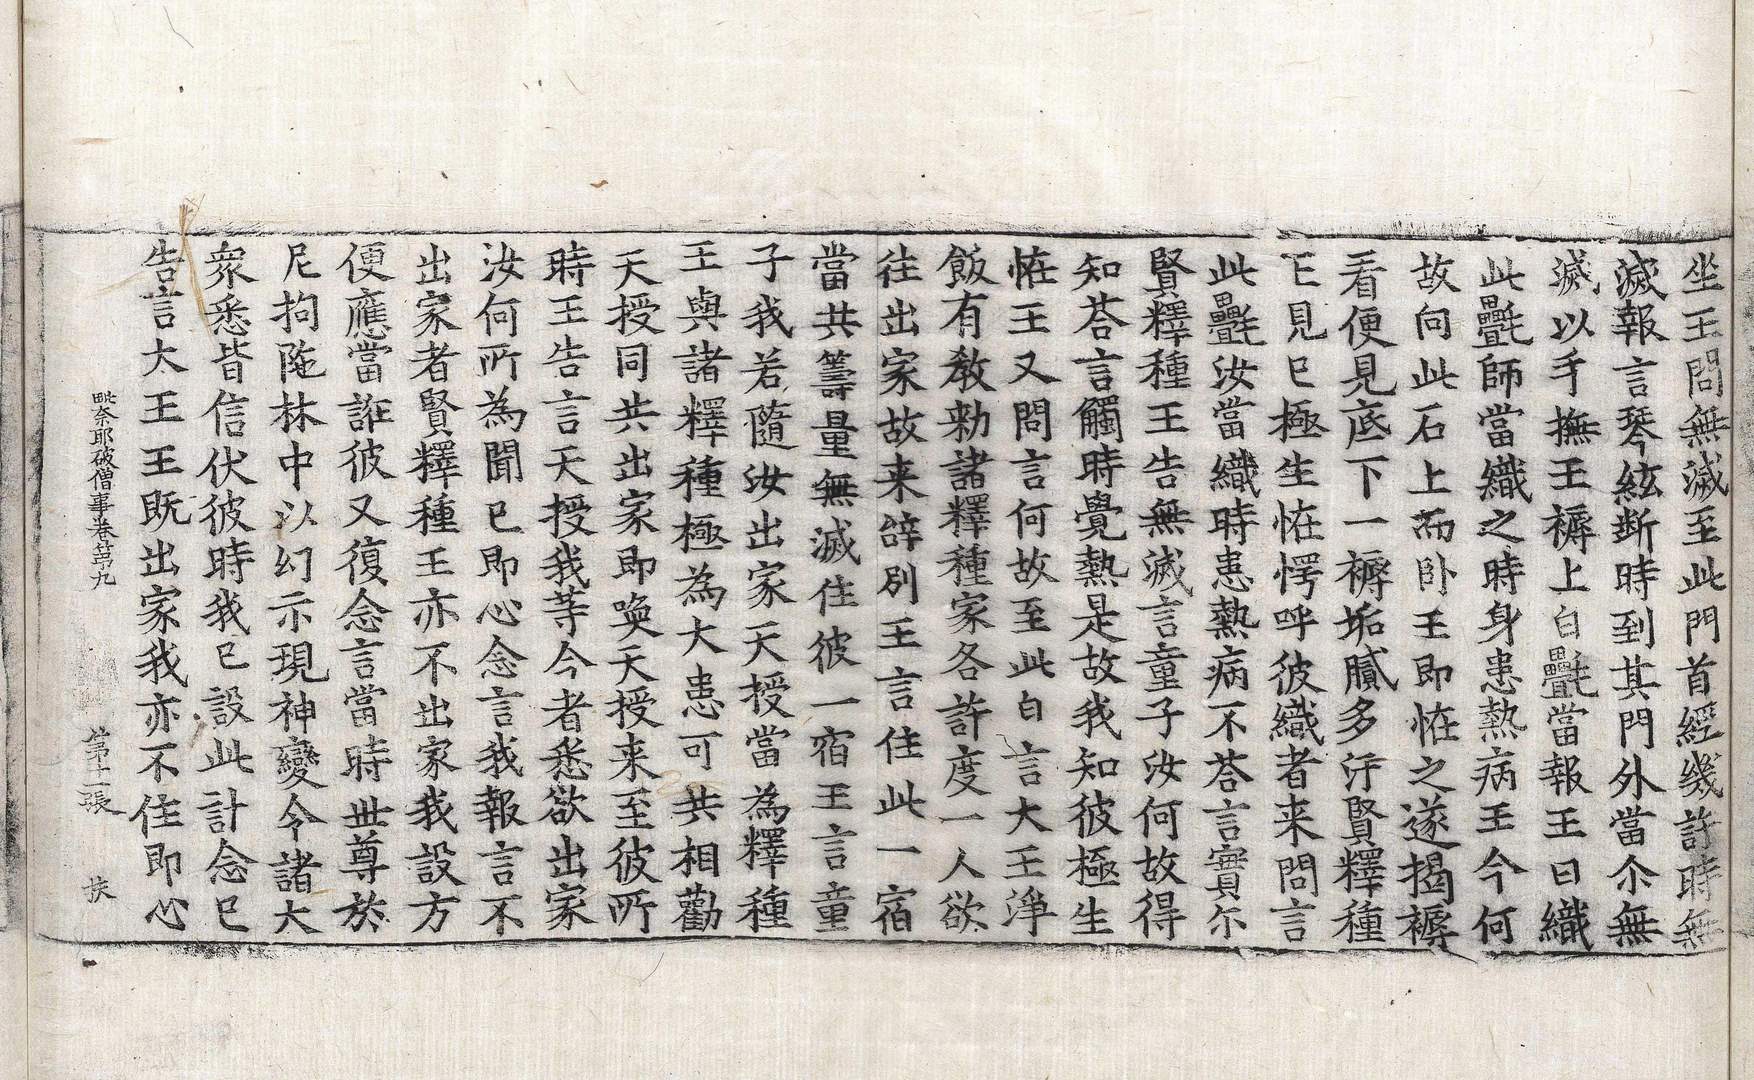 坐王問無滅至此門首經幾許時無
滅報言琴絃断時到其門外當尒無
滅以手撫王褥上白㲲當報王曰織
此㲲師當織之時身患熱病王今何
故向此石上而卧王即恠之遂揭褥
看便見底下一褥垢膩多汙賢釋種
王見已極生恠愕呼彼織者来問言
此㲲汝當織時患熱病不荅言實尒
賢釋種王告無滅言童子汝何故得
知荅言觸時覺熱是故我知彼極生
恠王又問言何故至此白言大王淨
飯有教勑諸釋種家各許度一人欲
往出家故来辝別王言住此一宿
當共籌量無滅住彼一宿王言童
子我若隨汝出家天授當為釋種
王與諸釋種極為大患可共相勸
天授同共出家即喚天授来至彼所
時王告言天授我等今者悉欲出家
汝何所為聞已即心念言我報言不
出家者賢釋種王亦不出家我設方
便應當誑彼又復念言當時世尊於
尼拘陁林中以幻示現神變令諸大
衆悉皆信伏彼時我已設此計念已
告言大王王既出家我亦不住即心
毗奈耶破僧事卷第九 第十二張 扶